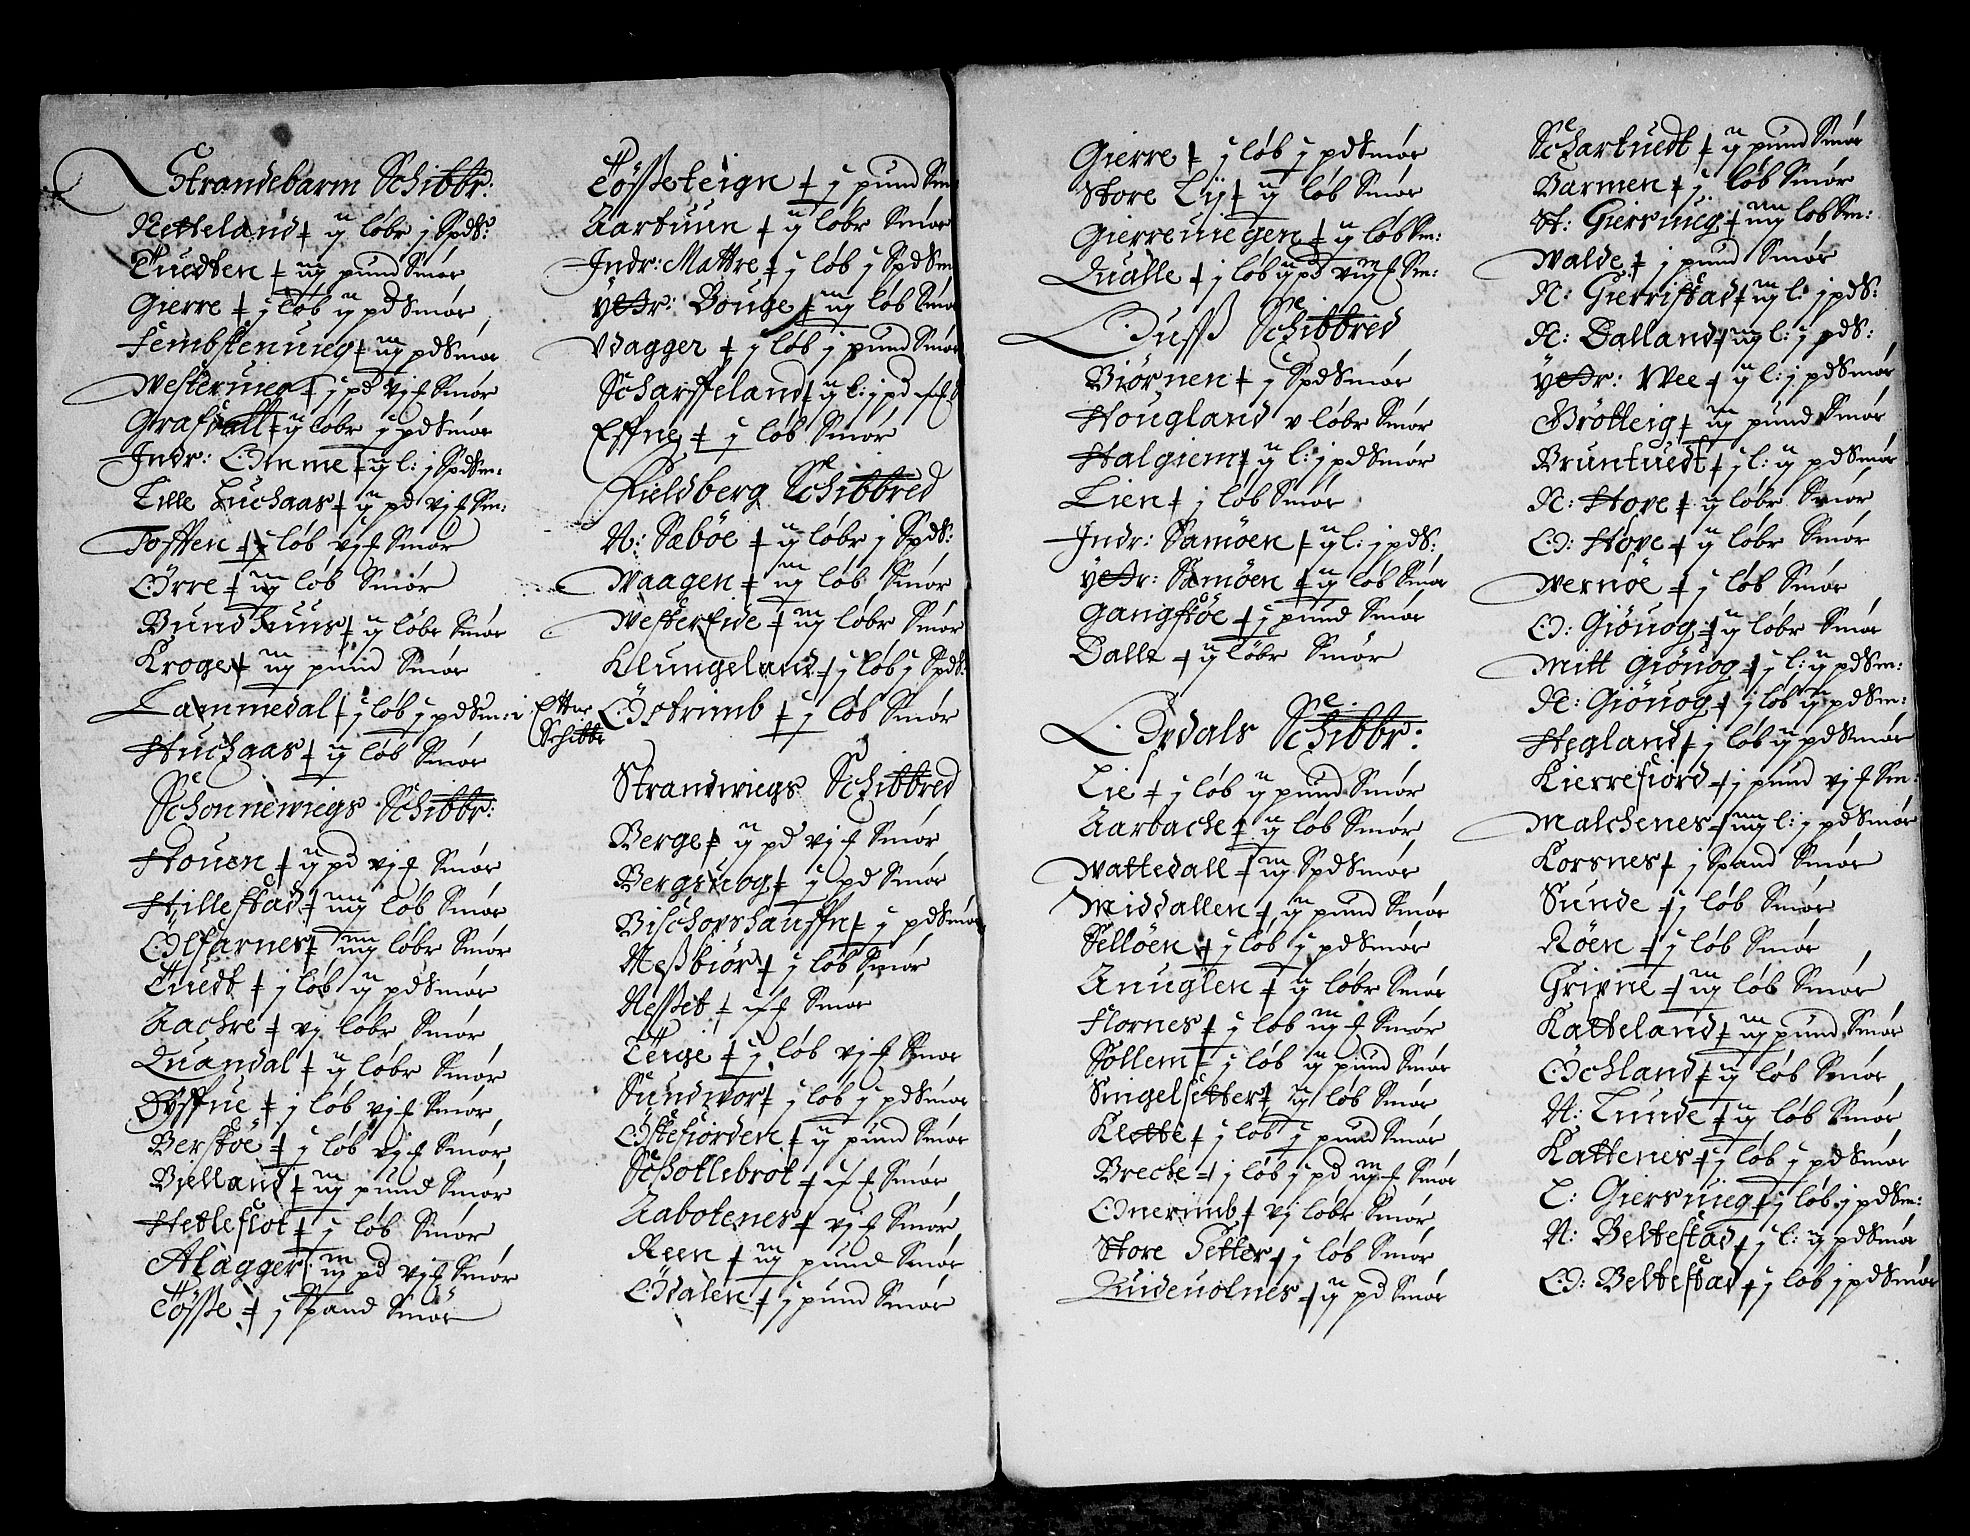 Strandebarm Schibbr:
Netteland ij løbr j Spd S:
Tuedten iij pund Smør
Gierre j løb ij pd Smør
Fembstenuieg iiij pd Smør
Westeruieg j pd vj £ Smør
Grafsuatt ij løbr j pd Smør
Indr: Omme ij l: j Spd Sm:
Lille Luchaas ij pd vj £ Sm:
Toften j løb vj £ Smør
Ørre iij løb Smør
Bundhuus ij løbr Smør
Kroge iij pund Smør
Lammedal j løb j pd Sm: i Ettne Schibbr
Huchaas ij løb Smør
Schonnewiegs Schibbr:
Houen ij pd vj £ Smør
Hillestad iiij løb Smør
Ølfarnes iiij løbr Smør
Tuedt j løb ij pd Smør
Aachre vj løbr Smør
Quandal ij løbr Smør
Dyffue j løb vj £ Smør
Berstøe j løb vj £ Smør
Bielland iij pund Smør
Hetleflot j løb Smør
Alagger iij pd vj £ Smør
Tøsse j Spand Smør
Tøsseteign j pund Sm
Aartuun ij løbr Smør
Indr: Mattre j løb j Spd Sm
Yttr: Bouge iij løb Smør
Vdagger j løb j pund Smør
Scharffeland ij l: j pd
Effne j løb Smør
Fieldberg Schibbred
N: Sæbøe ij løbr j Spd S:
Waagen iij løb Smør
Westerside iij løbr Smør
Klungeland j løb j Spd S:
Østrimb j løb Smør
Strandwiegs Schibbred
Berge ij pd vj £ Smør
Bergsuog j pd Smør
Bischopshauffn j pd Smør
Nessbiør j løb Smør
Nesset £ Smør
Terge j løb vj £ Smør
Sundwor j løb j pd Smør
Østefiorden ij pund Smør
Schottebrot £ Smør
Aabotenes vj £ Smør
Reen iij pund Smør
Ødalen j pund Smør
Gierre j løb j pd Smør
Store Lij ij løb Smør
Gierreuiegen ij løb Sm:
Qualle j løb ij pd viij £ Sm:
Øuss Schibbred
Biørnen j Spd Smør
Hougland v løbr Smør
Halgiem ij l: j pd Smør
Lien j løb Smør
Indr: Samøen ij l: j pd S:
Yttr: Samøen ij løb Smør
Gangstøe j pund Smør
Dalle ij løbr Smør
Opdals Schibbr:
Lie j løb ij pund Smør
Aarbache ij løb Smør
Wattedall iij Spd Smør
Middallen ij pund Smør
Selløen j løb j pd Smør
Anuglen ij løbr Smør
Flornes j løb iij £ Smør
Søllem j løb ij pund Smør
Singelsetter ij løb Smør
Klette j løb j pund Smør
Breche j løb j pd iij £ Smør
Onerimb vj løbr Smør
Store Setter j løb Smør
Quideuolnes ij pd Smør
Schartuedt ij pund Smør
Barmen j løb Smør
St: Giersuieg iiij løb Sm:
Walde j pund Smør
N: Gierristad iij l: j pd S:
N: Dalland iij l: j pd S:
Yttr: Wee ij l: j pd Smør
Brotteig iij pund Smør
Bruntuedt j l: ij pd Smør
N: Hope ij løbr Smør
Ø: Hope ij løbr Smør
Wernøe j løb Smør
Ø: Giøuog ij løbr Smør
Mitt Giøuog j l: ij pd Sm:
N: Giøuog j løb ij pd Sm:
Hegland j løb ij pd Smør
Kierrefiord j pund vj £ Sm:
Malchenes iiij l: j pd Smør
Korsnes j Spand Smør
Sunde j løb Smør
Røen j løb Smør
Gripne iij løb Smør
Katteland iij pund Smør
Øchland ij løb Smør
N: Lunde ij løb Smør
Kattenes j løb j pd Smør
L: Giersuieg j løb j pd Sm:
N: Beltestad j l: ij pd Smør
Ø: Beltestad j løb j pd Smør